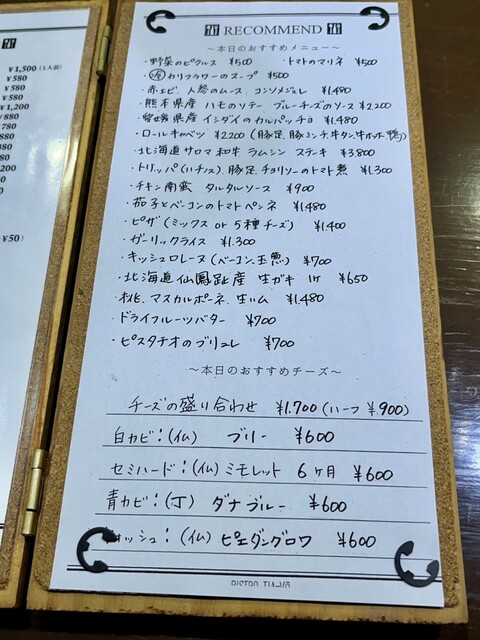 RECOMMEND
～本日のおすすめメニュー～
・野菜のピクルス ¥500 ・トマトのマリネ ¥500
・温 カリフラワーのスープ ¥500
・赤エビ、人参のムース、コンソメジュレ ¥1,480
・熊本県産 ハモのソテー ブルーチーズのソース ¥2,200
・愛媛県産 イシダイのカルパッチョ ¥1,480
・ロールキャベツ ¥2,200 (豚足、豚ミンチ、牛タン、牛ホホ、鴨)
・北海道サロマ和牛 ラムシン ステーキ ¥3,800
・トリッパ(ハチノス)、豚足、チョリソーのトマト煮 ¥1,300
・チキン南蛮 タルタルソース ¥900
・茄子とベーコンのトマトペンネ ¥1,480
・ピザ (ミックス or 5種チーズ) ¥1,400
・ガーリックライス ¥1,300
・キッシュロレーヌ (ベーコン、玉葱) ¥700
・北海道仙鳳趾産 生ガキ 1ケ ¥650
・桃、マスカルポーネ、生ハム ¥1,480
・ドライフルーツバター ¥700
・ピスタチオのブリュレ ¥700
～本日のおすすめチーズ～
チーズの盛り合わせ ¥1,700 (ハーフ ¥900)
白カビ：(仏) ブリー ¥600
セミハード：(仏) ミモレット 6ヶ月 ¥600
青カビ：(丁) ダナブルー ¥600
ォッシュ：(仏) ピエダングロワ ¥600
¥1,500 (1人前)
¥580
¥580
¥580
¥1,200
¥50)